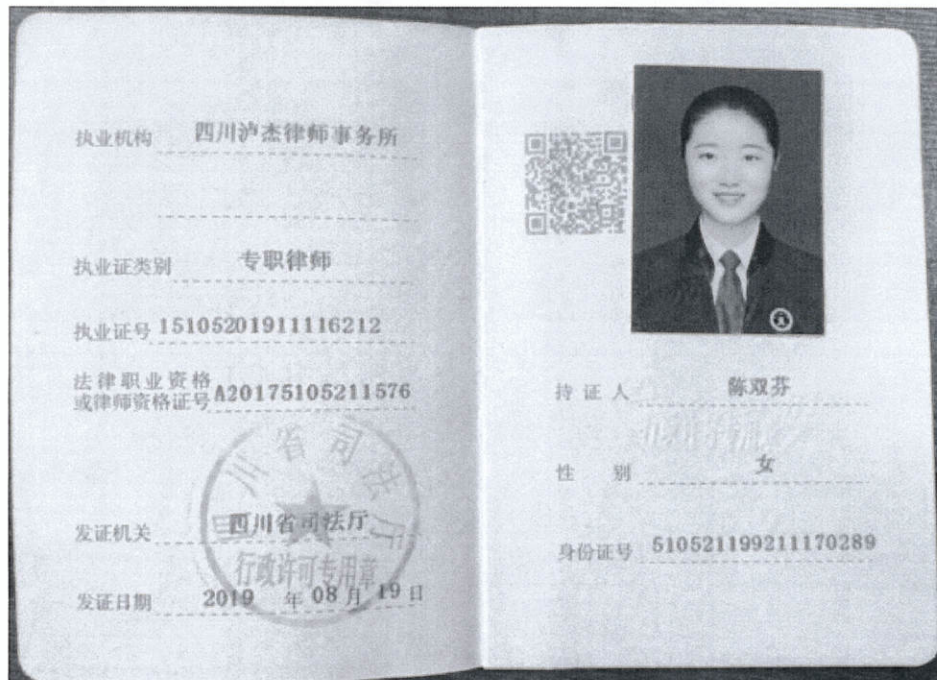 执业机构 四川泸杰律师事务所
执业证类别 专职律师
执业证号 15105201911116212
法律职业资格
或律师资格证号 A20175105211576
四川省司法厅
发证机关 四川省司法厅
行政许可专用章
发证日期 2019 年 08 月 19 日
持证人 陈双芬
性别 女
身份证号 510521199211170289